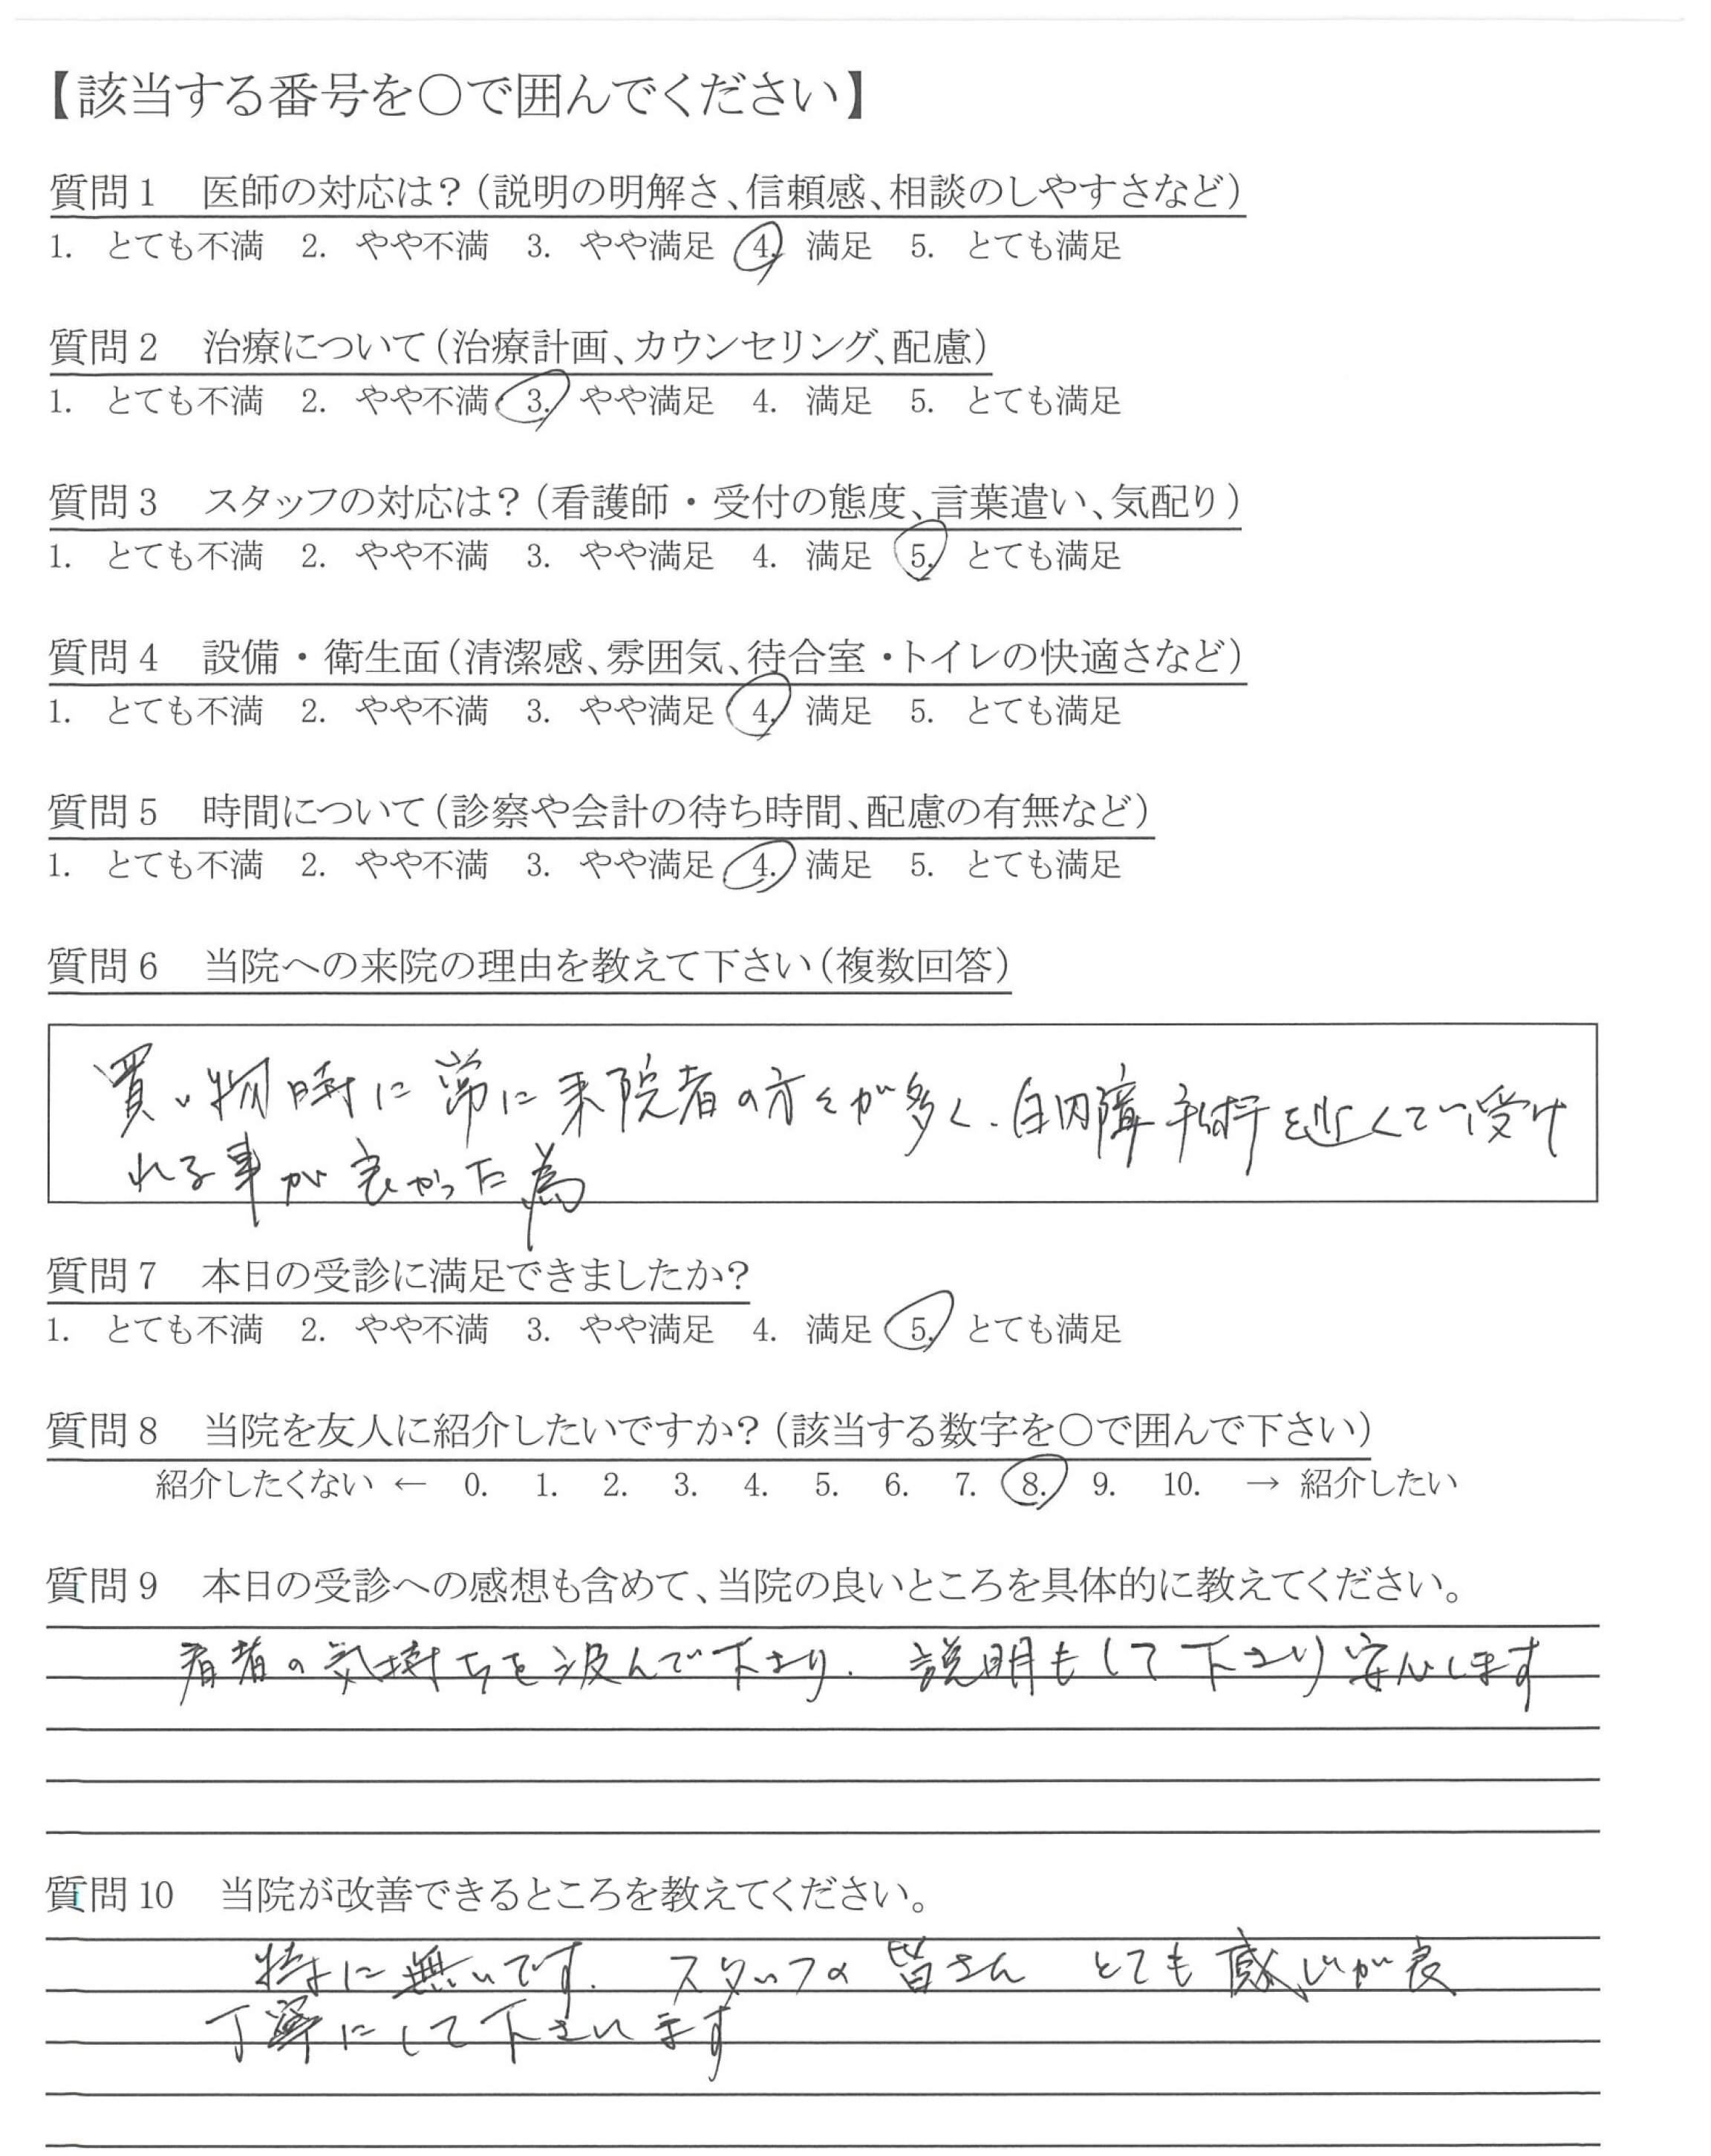 【該当する番号を○で囲んでください】
質問1 医師の対応は?(説明の明解さ、信頼感、相談のしやすさなど)
1. とても不満 2. やや不満 3. やや満足 4. 満足 5. とても満足
質問2 治療について(治療計画、カウンセリング、配慮)
1. とても不満 2. やや不満 3. やや満足 4. 満足 5. とても満足
質問3 スタッフの対応は?(看護師・受付の態度、言葉遣い、気配り)
1. とても不満 2. やや不満 3. やや満足 4. 満足 5. とても満足
質問4 設備・衛生面(清潔感、雰囲気、待合室・トイレの快適さなど)
1. とても不満 2. やや不満 3. やや満足 4. 満足 5. とても満足
質問5 時間について(診察や会計の待ち時間、配慮の有無など)
1. とても不満 2. やや不満 3. やや満足 4. 満足 5. とても満足
質問6 当院への来院の理由を教えて下さい(複数回答)
買い物時に常に来院者の方々が多く、白内障手術を近くで受け
れる事が良かった為
質問7 本日の受診に満足できましたか?
1. とても不満 2. やや不満 3. やや満足 4. 満足 5. とても満足
質問8 当院を友人に紹介したいですか?(該当する数字を○で囲んで下さい)
紹介したくない ← 0. 1. 2. 3. 4. 5. 6. 7. 8. 9. 10. → 紹介したい
質問9 本日の受診への感想も含めて、当院の良いところを具体的に教えてください。
の気持ちを汲んで下さり、説明もして下さり安心します
質問10 当院が改善できるところを教えてください。
特に無いです。スタッフの皆さん とても感じが良
丁寧にして下さいます